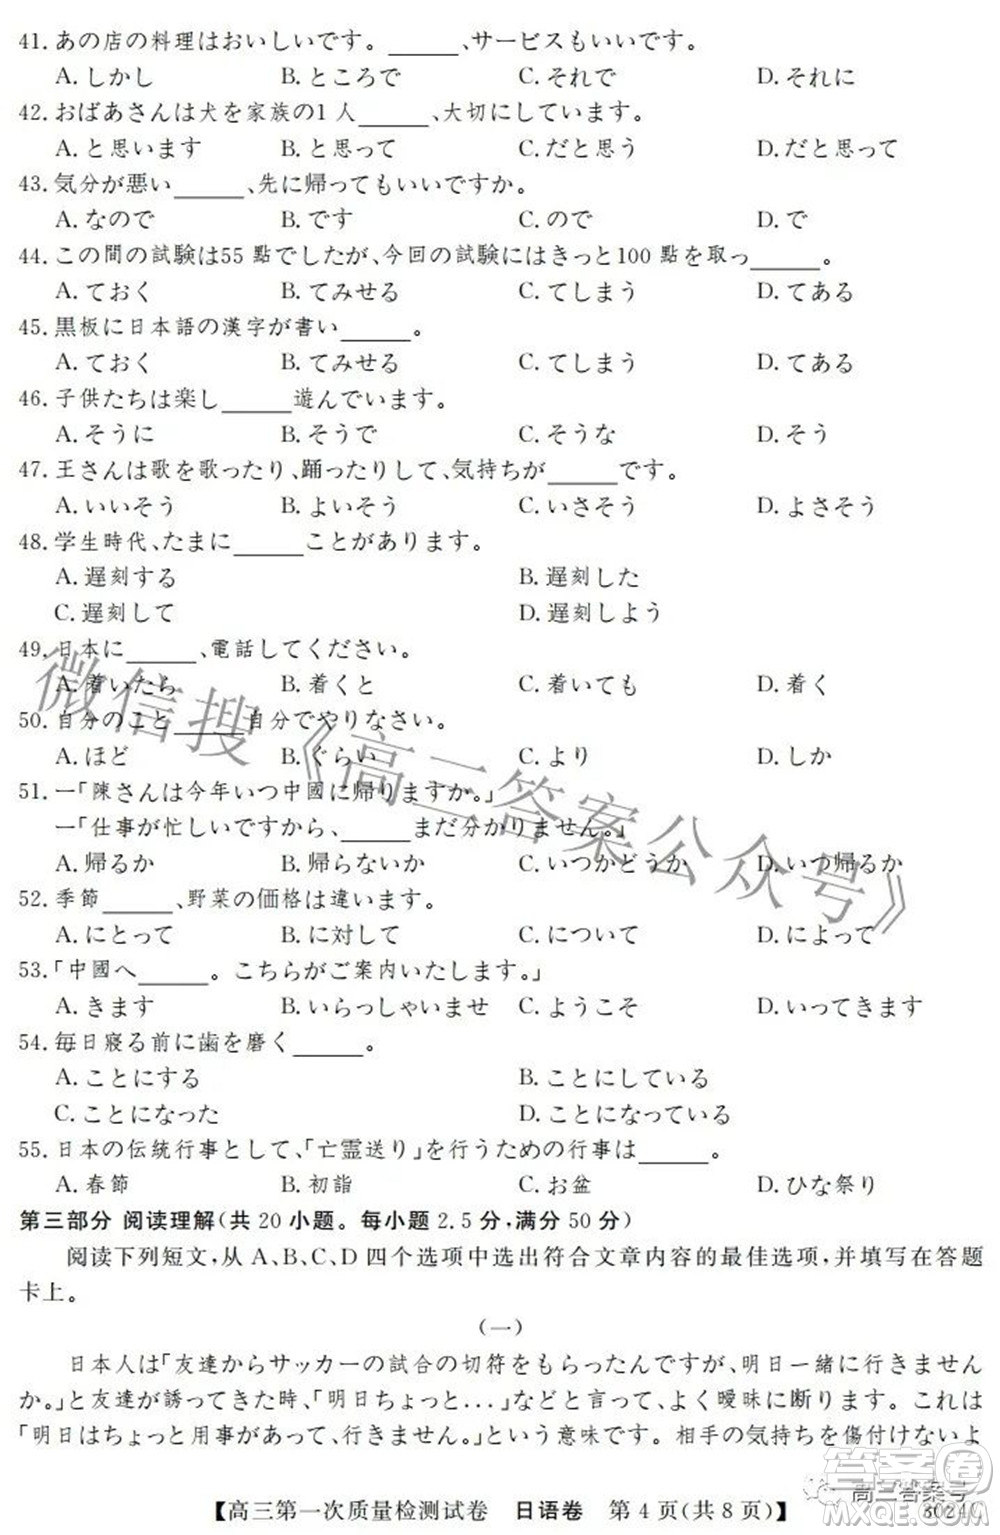 41. あの店の料理はおいしいです。______、サービスもいいです。
A. しかし B. ところで C. それで D. それに
42. おばあさんは犬を家族の1人______、大切にしています。
A. と思います B. と思って C. だと思う D. だと思って
43. 気分が悪い______、先に帰ってもいいですか。
A. なので B. です C. ので D. で
44. この間の試験は55點でしたが、今回の試験にはきっと100點を取っ______。
A. ておく B. てみせる C. てしまう D. てある
45. 黒板に日本語の漢字が書い______。
A. ておく B. てみせる C. てしまう D. てある
46. 子供たちは楽し______遊んでいます。
A. そうに B. そうで C. そうな D. そう
47. 王さんは歌を歌ったり、踊ったりして、気持ちが______です。
A. いいそう B. よいそう C. いさそう D. よさそう
48. 学生時代、たまに______ことがあります。
A. 遅刻する B. 遅刻した
C. 遅刻して D. 遅刻しよう
49. 日本に______、電話してください。
A. 着いたら B. 着くと C. 着いても D. 着く
50. 自分のこと______自分でやりなさい。
A. ほど B. ぐらい C. より D. しか
51. ー「陳さんは今年いつ中國に帰りますか。」
ー「仕事が忙しいですから、______まだ分かりません。」
A. 帰るか B. 帰らないか C. いつかどうか D. いつ帰るか
52. 季節______、野菜の価格は違います。
A. にとって B. に対して C. について D. によって
53. 「中國へ______。こちらがご案内いたします。」
A. きます B. いらっしゃいませ C. ようこそ D. いってきます
54. 毎日寝る前に歯を磨く______。
A. ことにする B. ことにしている
C. ことになった D. ことになっている
55. 日本の伝統行事として、「亡霊送り」を行うための行事は______。
A. 春節 B. 初詣 C. お盆 D. ひな祭り
第三部分 阅读理解(共 20 小题。每小题 2.5 分,满分 50 分)
阅读下列短文,从 A、B、C、D 四个选项中选出符合文章内容的最佳选项,并填写在答题
卡上。
(一)
日本人は「友達からサッカーの試合の切符をもらったんですが、明日一緒に行きません
か。」と友達が誘ってきた時、「明日ちょっと...」などと言って、よく曖昧に断ります。これは
「明日はちょっと用事があって、行きません。」という意味です。相手の気持ちを傷付けないよ
【高三第一次质量检测试卷 日语卷 第 4 页(共 8 页)】
3024C
微信搜《高三答案公众号》
高三答案号
答案圈
MXQE.COM